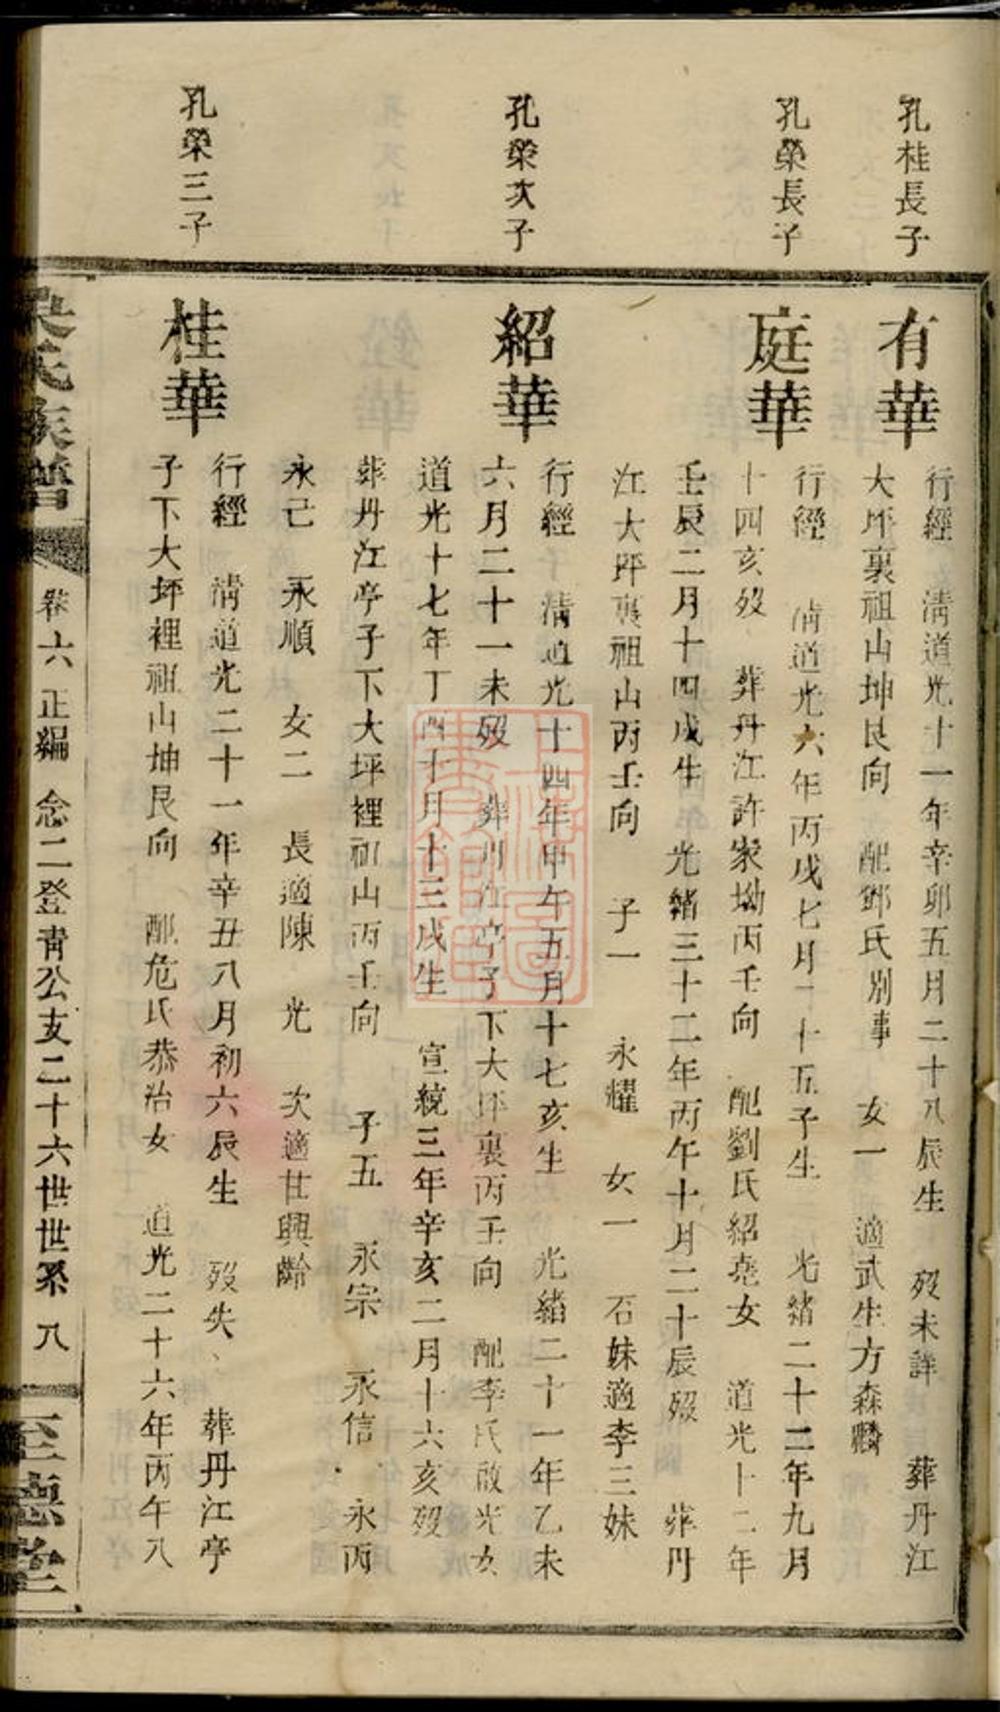 孔桂長子
有華
行經 清道光十一年辛卯五月二十八辰生 歿未詳 葬丹江
大坪裏祖山坤艮向 配鄧氏別事 女一 適武生方森麟
孔榮長子
庭華
行經 清道光六年丙戌七月二十五子生 光緒二十二年九月
十四亥歿 葬丹江許家坳丙壬向 配劉氏紹堯女 道光十二年
壬辰二月十四戌生 光緒三十二年丙午十月二十辰歿 葬丹
江大坪裏祖山丙壬向 子一 永耀 女一 石妹適李三妹
孔榮次子
紹華
行經 清道光十四年甲午五月十七亥生 光緒二十一年乙未
六月二十一未歿 葬丹江亭子下大坪裏丙壬向 配李氏啟光女
道光十七年丁酉十月十三戌生 宣統三年辛亥二月十六亥歿
葬丹江亭子下大坪裡祖山丙壬向 子五 永宗 永信 永丙
永己 永順 女二 長適陳 光 次適甘興齡
孔榮三子
桂華
行經 清道光二十一年辛丑八月初六辰生 歿失、葬丹江亭
子下大坪裡祖山坤艮向 配危氏恭治女 道光二十六年丙午八
吳氏族譜 卷六 正編 念二登青公支二十六世世系 八 至德堂